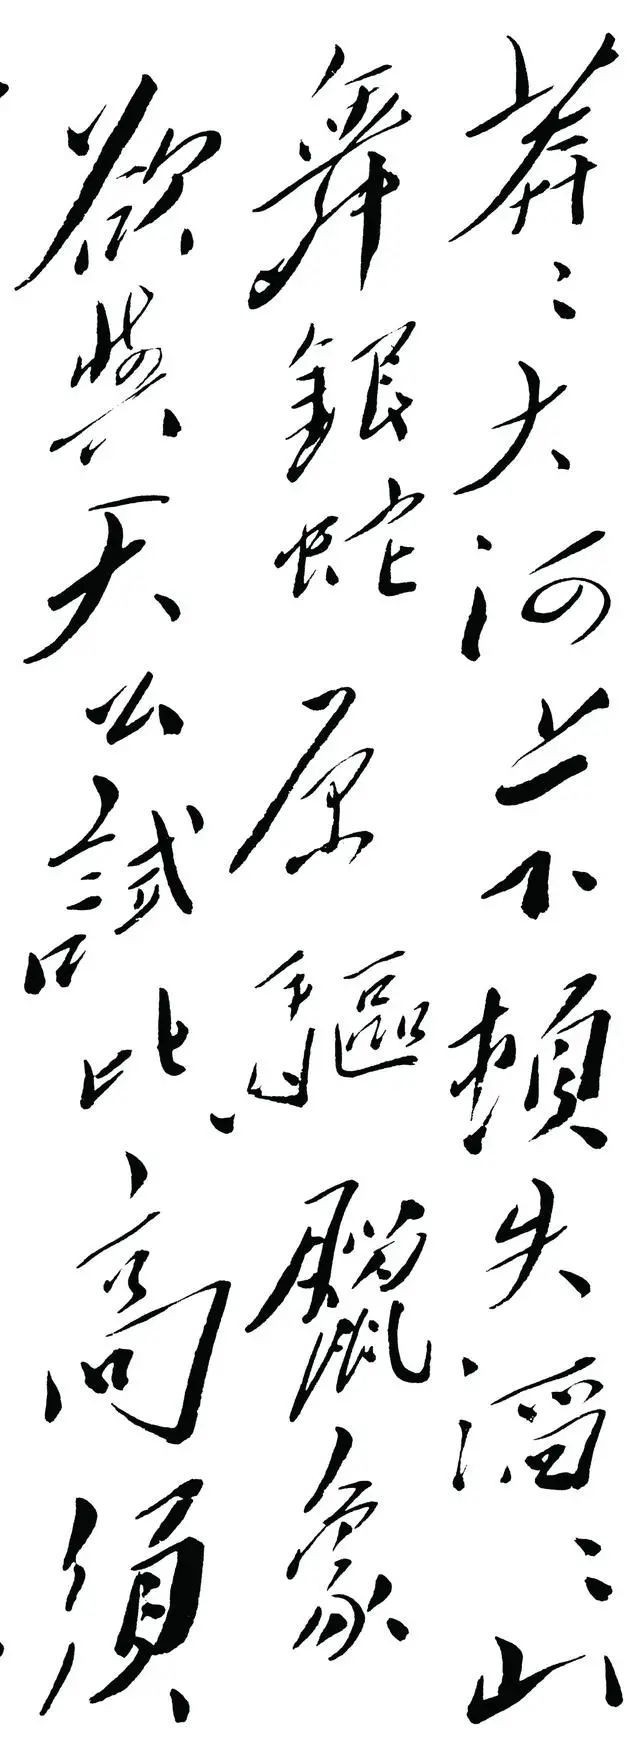 莽〻大河上下頓失滔〻山
舞銀蛇原驅臘象
欲與天公試比高須